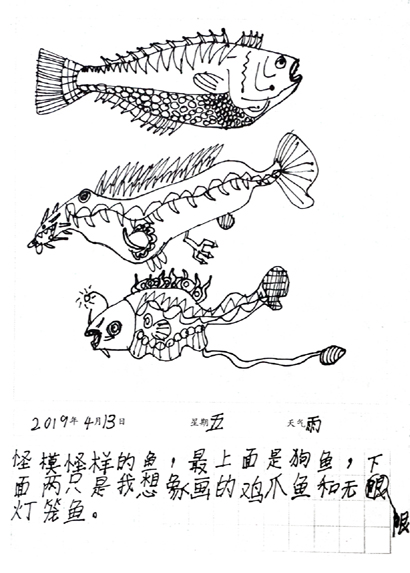 2019年4月13日 星期五 天气雨
怪模怪样的鱼，最上面是狗鱼，下
面两只是我想象画的鸡爪鱼和无眼
灯笼鱼。